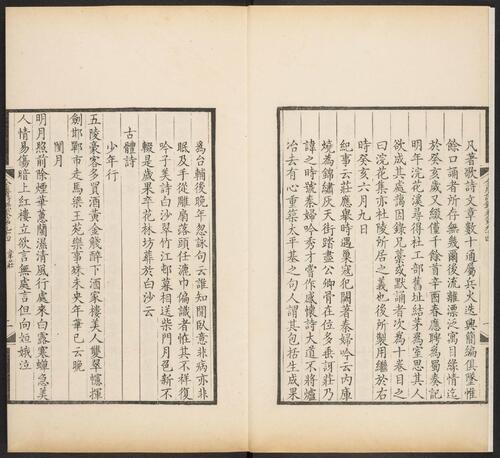 凡著歌詩文章數十通屬兵火迭興簡編俱墜惟
餘口誦者所存無幾爾後流離漂泛寓目緣情迄
於癸亥歲又綴僅千餘首辛酉春應聘為蜀奏記
明年浣花溪尋得杜工部舊址結茅為室思其人
欲成其處藹因錄兄藁或默誦者次為十卷目之
曰浣花集亦杜陵所居之義也後所製用繼於右
時癸亥六月九日
紀事云莊應舉時遇巢寇犯闕著秦婦吟云內庫
燒為錦繡灰天街踏盡公卿骨在位多垂訝莊乃
諱之時號秦婦吟秀才嘗作感懷詩大道不將爐
冶去有心重築太平基之句人謂其包括生成果
為台輔後晚年忽詠句云誰知閒臥意非病亦非
眠及手從雕扇落頭任漉巾偏識者惟其不祥復
吟子美詩白沙翠竹江邨暮相送柴門月色新不
輟是歲果卒花林坊葬於白沙云
古體詩
少年行
五陵豪客多買酒黃金賤醉下酒家樓美人雙翠幰揮
劍邯鄲市走馬梁王苑樂事殊未央年華已云晚
閨月
明月照前除煙華蕙蘭濕清風行處來白露寒蟬急美
人情易傷暗上紅樓立欲言無處言但向姮娥泣